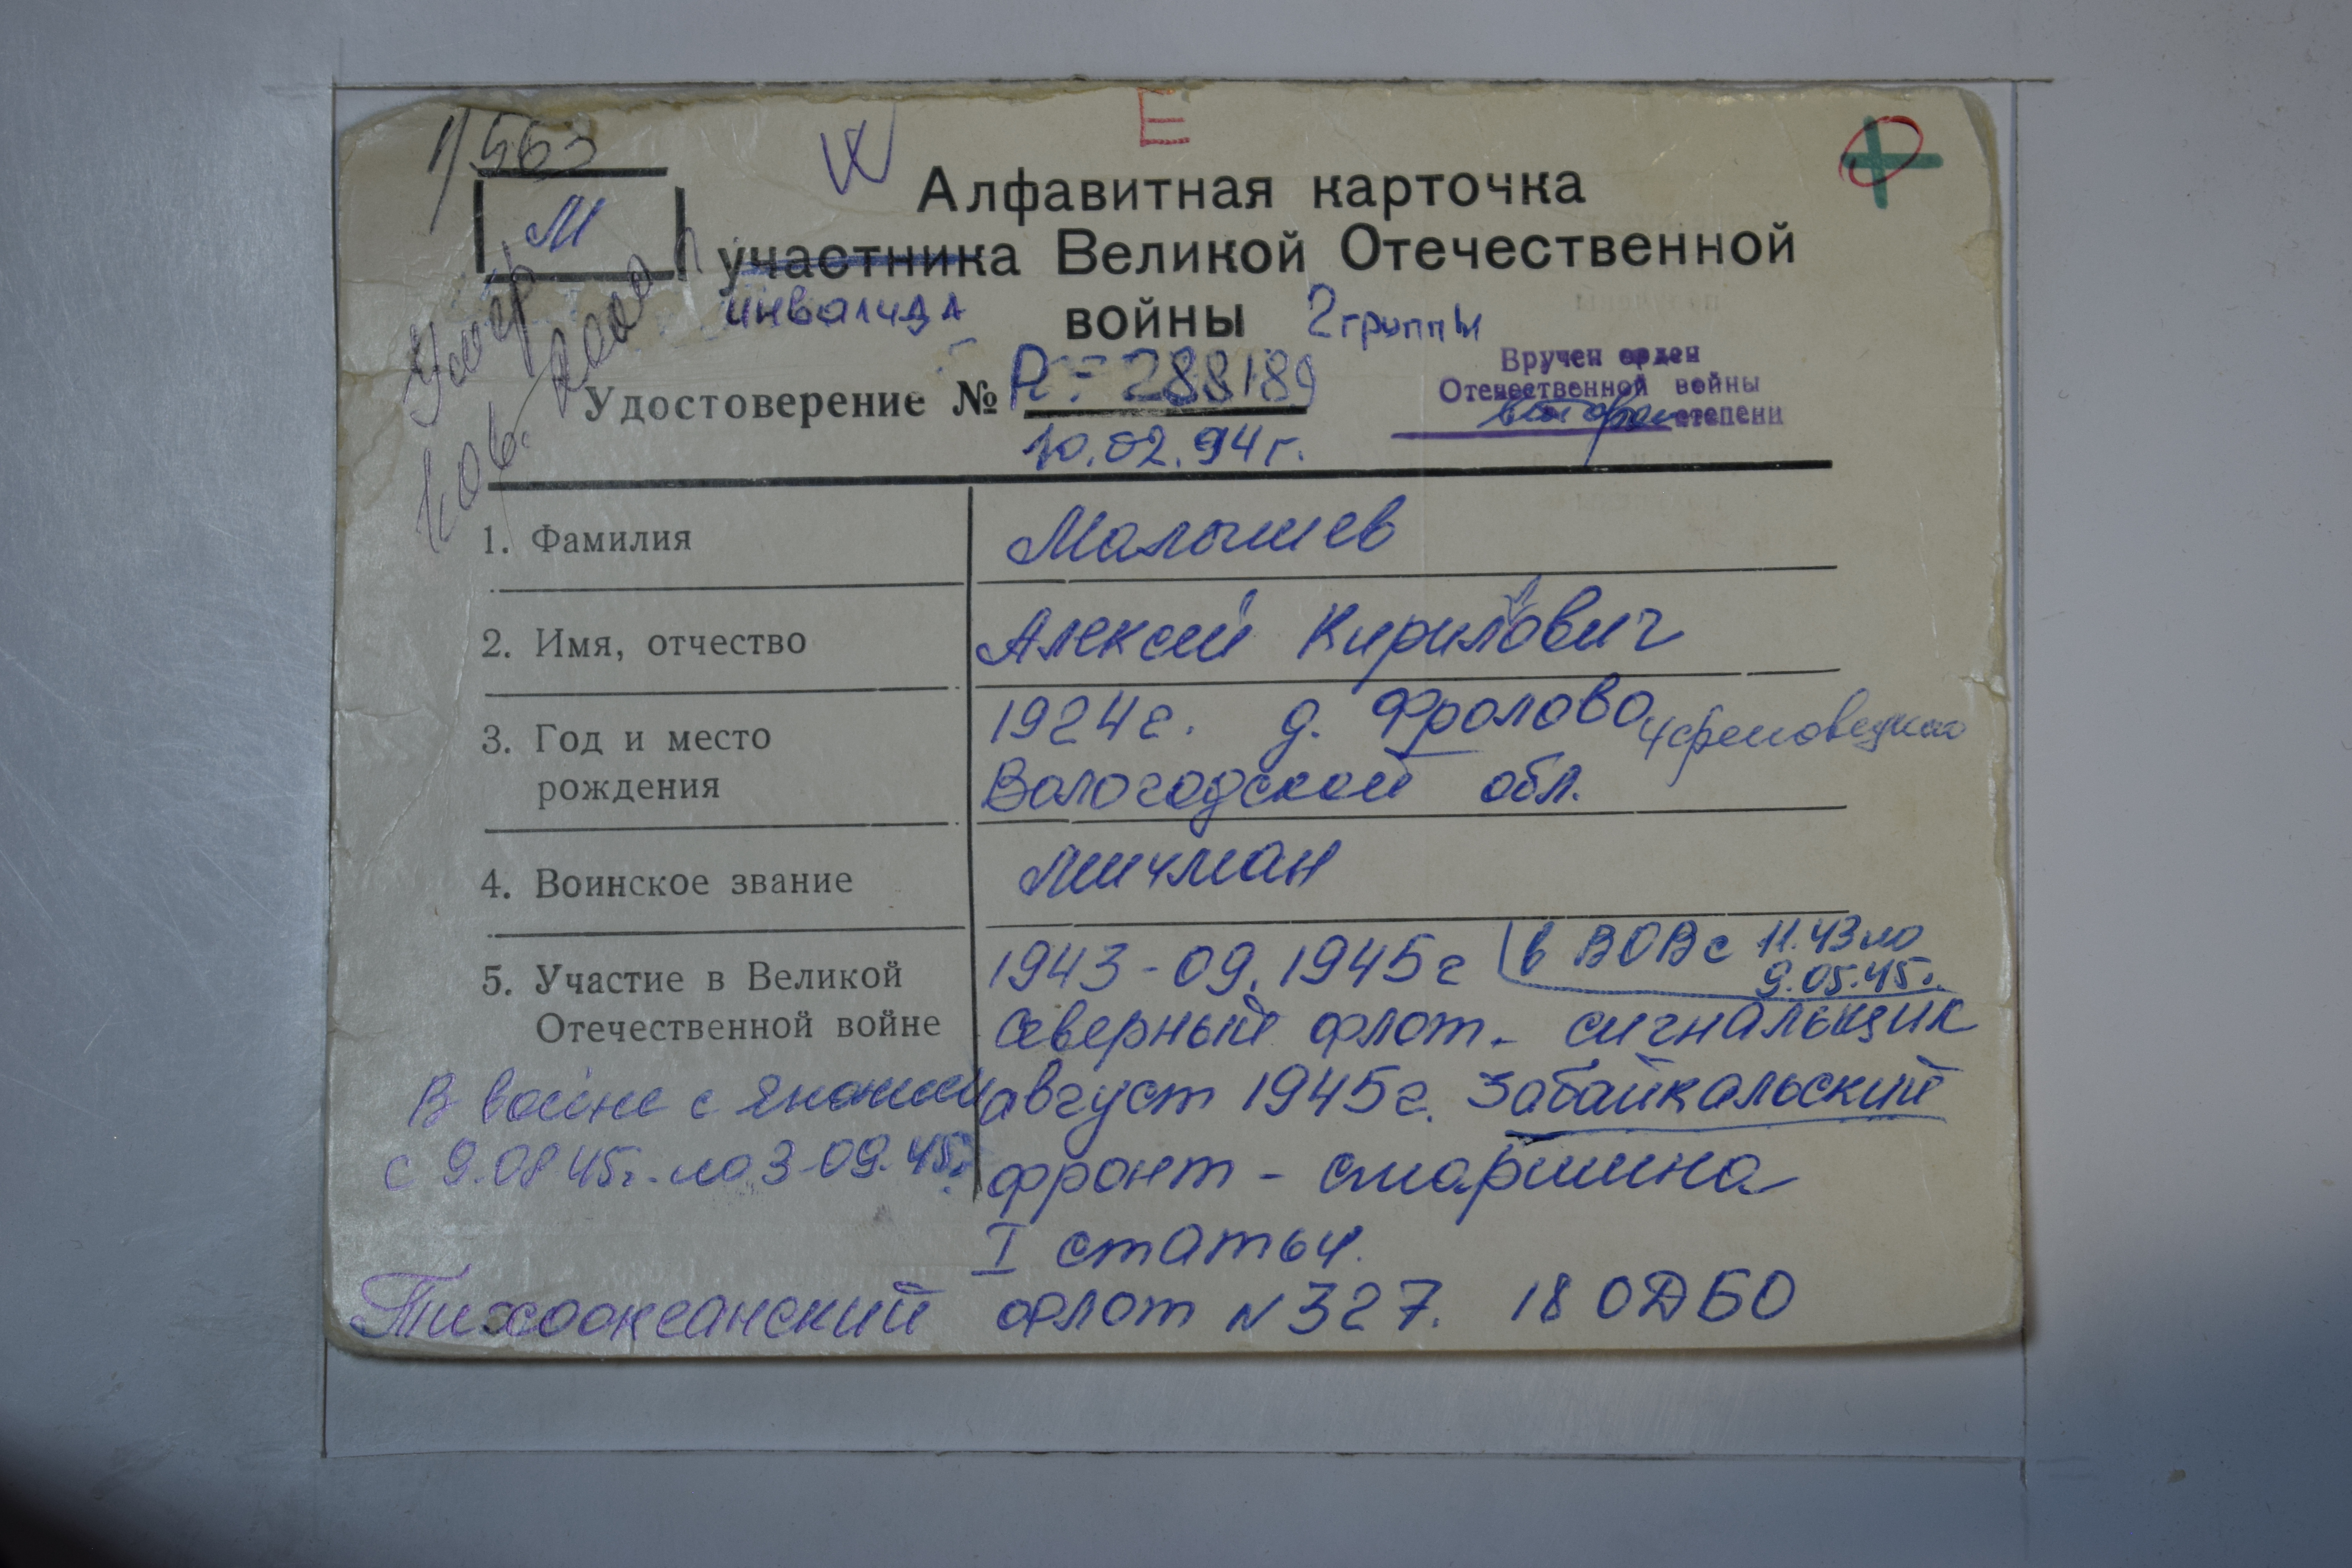 1/563
Е
М
Алфавитная карточка
участника Великой Отечественной
инвалида войны 2 группы
Умер
2000 г
Вручен орден
Отечественной войны
второй степени
Удостоверение № Р-288189
10.02.94г.
1. Фамилия Малышев
2. Имя, отчество Алексей Кирилович
3. Год и место 1924г. д. Фролово Череповецкого
рождения Вологодской обл.
4. Воинское звание мичман
5. Участие в Великой 1943-09.1945г в ВОВ с 11.43 по
9.05.45г.
Отечественной войне Северный флот - сигнальщик
В войне с Японией август 1945г. Забайкальский
с 9.08 45г. по 3-09.45г. фронт - старшина
I статьи.
Тихоокеанский флот N 327. 18 ОДБО